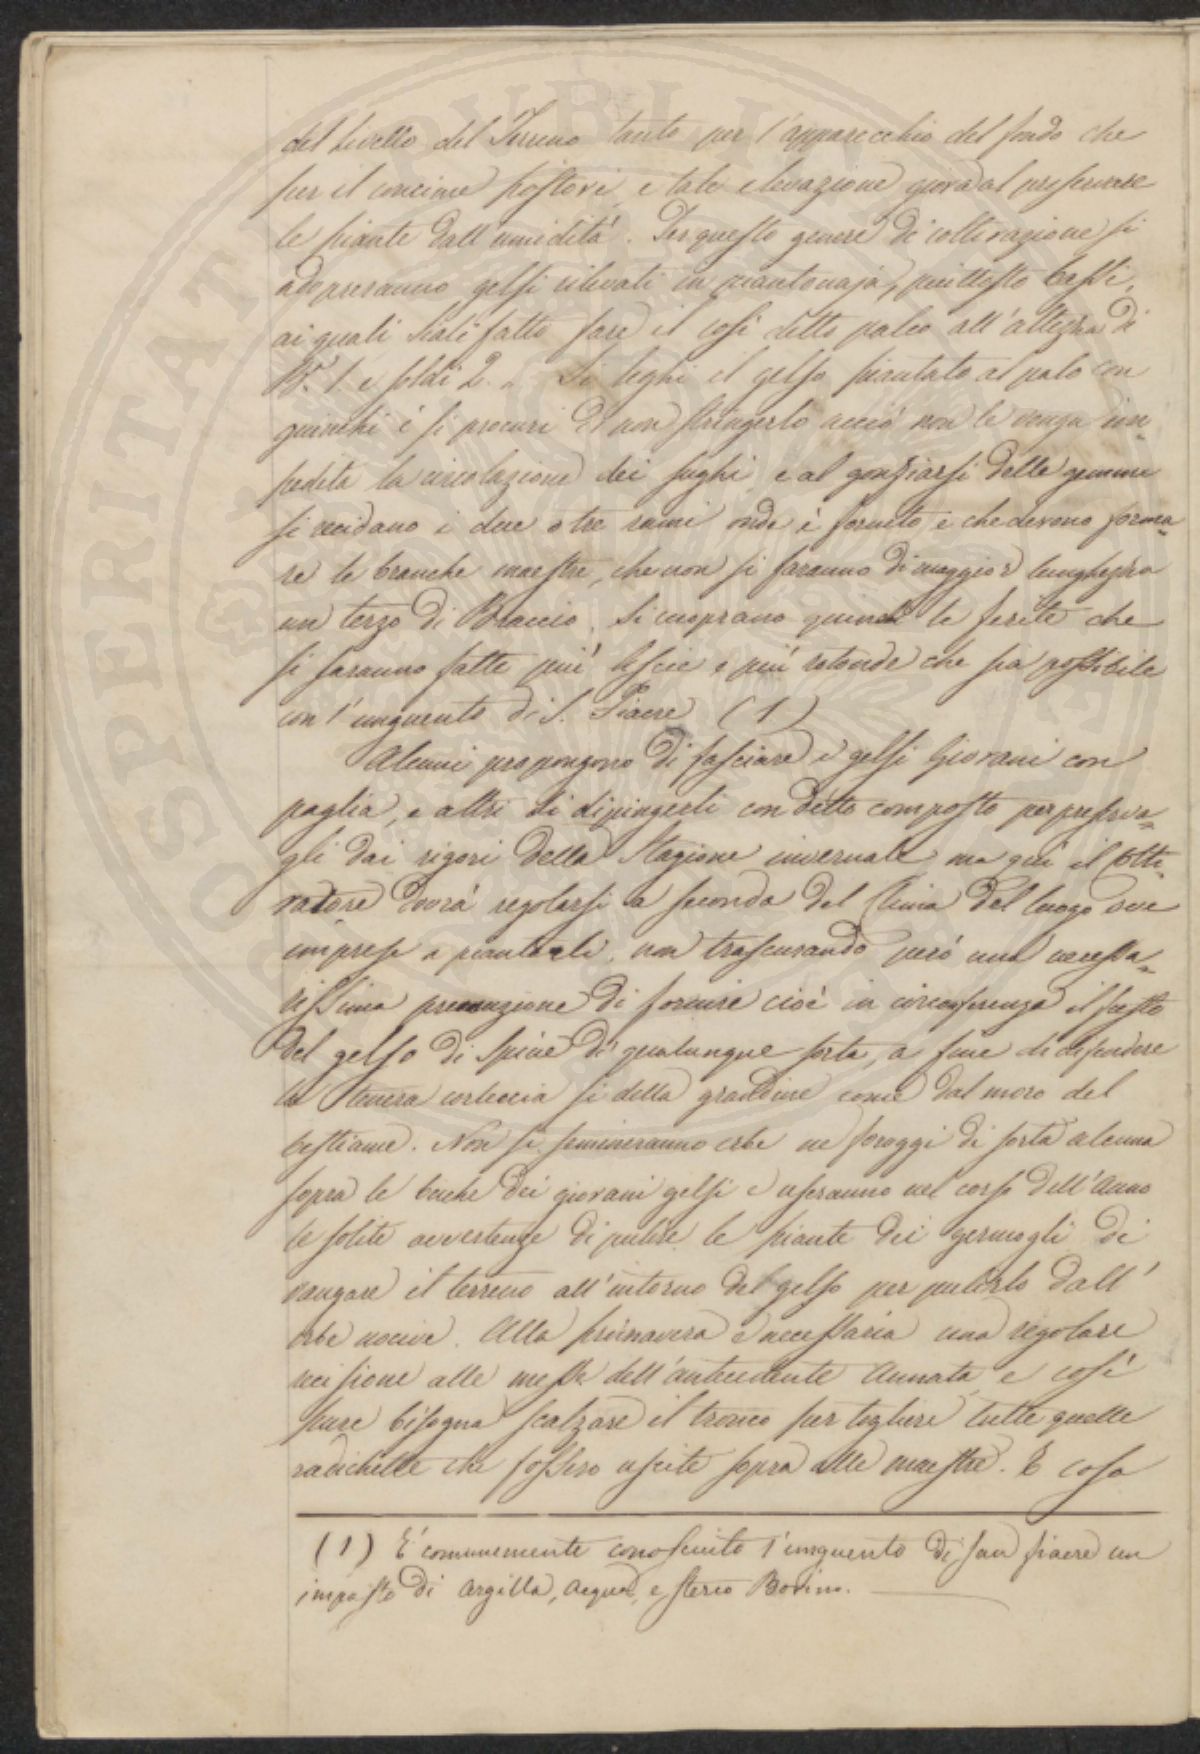 del Livello del Terreno tanto per l'apparecchio del fondo che
per il concime postovi, e tale elevazione giova al preservare
le piante dall'umidità. Per questo genere di coltivazione si
adopreranno gelsi rilevati in piantonaja, piuttosto bassi,
ai quali siasi fatto fare il così detto palco all'altezza di
B.ª 1. e soldi 2. Si leghi il gelso piantato al palo con
giunchi e si procuri di non stringerlo acciò non le venga im=
pedita la circolazione dei sughi, e al gonfiarsi delle gemme
si recidano i due o tre rami onde è fornito e che devono forma=
re le branche maestre, che non si faranno di maggior lunghezza
un terzo di Braccio. Si cuoprano quindi le ferite che
si saranno fatte più liscie e più rotonde che sia possibile
con l'unguento di S. Fiacre (1)
Alcuni propongono di fasciare i gelsi Giovani con
paglia, e altri di dipingerli con detto composto per preserva=
gli dai rigori della Stagione invernale ma qui il Colti=
vatore dovrà regolarsi a seconda del Clima del luogo ove
imprese a piantarli, non trascurando però una necessa=
rissima precauzione di fornire cioè in circonferenza il fusto
del gelso di Spine di qualunque sorta, a fine di difendere
la tenera corteccia si della grandine come dal morso del
bestiame. Non si semineranno erbe ne foraggi di sorta alcuna
sopra le buche dei giovani gelsi e useranno nel corso dell'Anno
le solite avvertenze di pulire le piante dei germogli di
vangare il terreno all'intorno del gelso per pulirlo dall'
erbe nocive. Alla primavera è necessaria una regolare
recisione alle messe dell'antecedente Annata, e così
pure bisogna scalzare il tronco per togliere tutte quelle
radichelle che fossero uscite sopra alle maestre. E cosa
(1) E' comunemente conosciuto l'unguento di san fiacre un
impasto di Argilla, Acqua, e sterco Bovino.